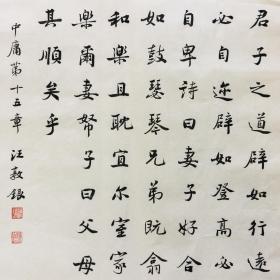 君子之道辟如行遠
必自迩辟如登高必
自卑詩曰妻子好合
如鼓瑟琴兄弟既翕
和樂且耽宜尔室家
樂爾妻帑子曰父母
其順矣乎
中庸第十五章 汪